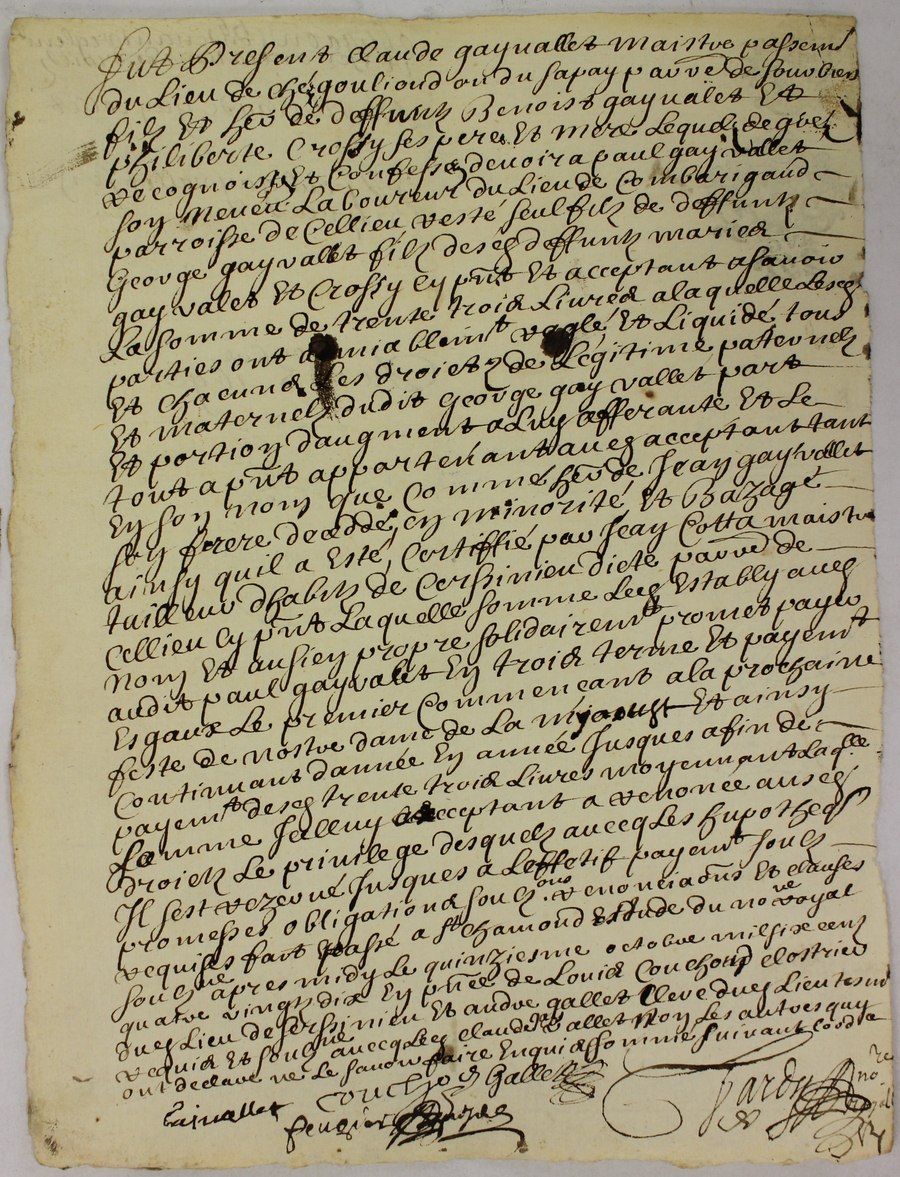 Fut Present Claude gayvallet maistre passem
du Lieu de chégouliond ou du sapay parre de
filz Et her de deffuntz Benoist gayvalet Et
philiberte Crossy ses pere Et mere Lequel de gré
recognoist Et Confesse devoir a paul gay vallet
son Neveu Laboureur du Lieu de Combarigaud
parroisse de Cellieu resté seul filz de deffuntz
George gay vallet filz desd deffuntz mariez
gay valet Et Crossy Cy pnt Et acceptant asavoir
La somme de trente trois Livres a laquelle Lesd
parties ont amiablemt reglé Et Liquidé tous
Et chacuns Les droietz de Legitime paternelz
Et maternelz dudit George gay vallet part
Et portion daugment a Luy afferante Et Le
tout a pnt appartenant aud acceptant tant
En son nom que Comme her de Jean gay vallet
son frere decedé en minorité Et Bazagé
ainsy quil a Esté Certiffié par Jean Cotta maistre
tailleur dhabitz de Cerssinieu dicte parre de
Cellieu Cy pnt Laquelle somme Led Estably aud
Nom Et ausien propre solidairemt promet payer
audit paul gayvalet En trois terme Et payemt
Esgaux Le premier Commencant a la prochaine
feste de nostre dame de La my aoust Et ainsy
Continuant dannée En année Jusques a fin de
payemt desd trente trois Livres moyennant Laqlle
somme Jcelluy acceptant a renoncé ausd
droietz Le privilege desquelz avecq Les hypotheqs
Il sest rezervé Jusques a Leffetif payemt soubz
promesses obligations soubzons renonciaons Et clauses
requises fait Et passé a St chamond Estude du nore royal
soubzne apres midy Le quinziesme octobre mil six centz
quatre vingtz dix En pnce de Louis Couchoud
dud Lieu de Cerssinieu Et andre gallet Cleve dud Lieu tesmn
requis Et soubzne avecq Led Gallet Non Les autres quy
ont declare ne Le savoir faire Enquis Somme suivant Lordce
Couchod Gallet
gaivallet